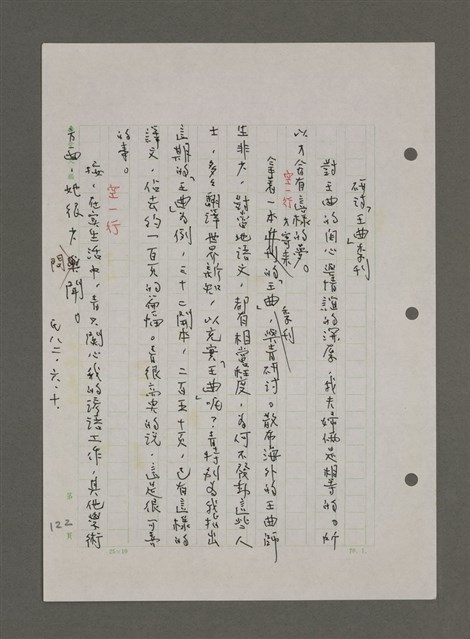 研討「王曲」季刊
對王曲的関心與情誼的深厚，我夫婦俩是相等的。所
以才會有這樣的夢。
空一行
拿着一本「王曲」，與青研討。散布海外的王曲師
季刊
生非少，對當地語文，都有相當程度，為何不發動這些人
士，多多翻譯世界新知，以充實「王曲」呢？青特別為我指出
這期的「王曲」為例，三十二開本，二百五十頁，已有這樣的
譯文，佔去約一百頁的篇幅。青很高興的說，這是很可喜
的事。
空一行
按，在實生活中，青只関心我的写读工作，其他學術
方面，她很少聞問。
民八二、六、十、
122